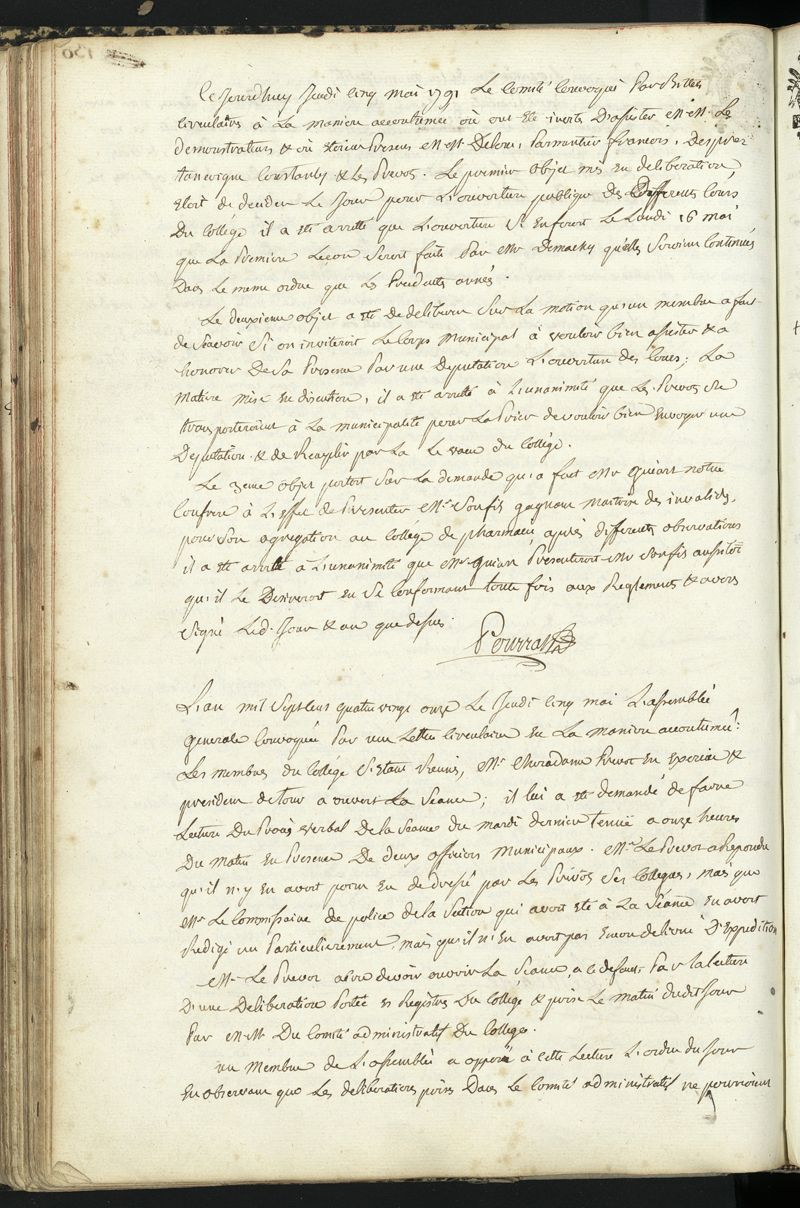 Ce Jourd'huy Jeudi cinq mai 1791 Le Comité Convoqué Par Billets
circulaires à La maniere accoutumée où ont été invités D'assister MM. Les
demonstrateurs & où étoient Presens MM. Delou, Parmentier francois, Despres
Tancoigne Coustanly & Les Prevos. Le premier objet mis en deliberation
étoit de decider Le Jour pour L'ouverture publique Des Differents Cours
Du Collége il a été arretté que L'ouverture S'en feroit Le Lundi 16 mai
que La Premiere Leçon Seroit faite Par Mr. Demachy qu'elles Seroient Continués
Dans Le meme ordre que Les Precedents années.
Le deuxieme objet a été De deliberer Sur La motion qu'un membre a fait
de Scavoir Si on inviteroit Le Corps Municipal à vouloir bien assister & a
honorer De Sa Presence Par une Deputation L'ouverture des Cours; La
Matiere mise en discution, il a été arretté à L'unanimité que Les Prevos Se
transporteroient à La municipalité pour La Prier de vouloir bien Envoyer une
Deputation & de Remplir par La Le voeu du Collége.
Le 3eme objet portoit Sur La demande qu'a fait Mr Quiart notre
Confrere à L'effet de Presenter Mr. Soufis gagnant Maitrise des invalides,
pour Son agregation au Collége de pharmacie, après differents observations
il a été arretté à L'unanimité que Mr. Quiart Presenteroit Mr Soufis aussitôt
qu'il Le Desireroit en Se Conformant toute fois aux Reglements & avons
Signé Led. Jour & an que dessus.
L'an mil Sept cens quatre vingt onze Le Jeudi cinq mai L'assemblée
generale Convoquée Par une Lettre circulaire En La maniere accoutumée:
Les membres du Collége S'étant Reunis, Mr Cheradame Prevot En Exercice &
president De tour a ouvert La Seance; il lui a été demandé de faire
Lecture Du Procès verbal De La Seance Du mardi dernier tenue a onze heures
Du matin En Presence De deux officiers Municipaux. Mr. Le Prevot a Repondu
qu'il n'y En avoit point Eu de dressé par Les Prevos Ses Collegues, mais que
Mr. Le Commissaire de police de La Section qui avoit été à La Séance En avoit
Redigé un Particulierement, mais qu'il n'En avoit pas Encore delivré D'Expedition
Mr. Le Prevot a cru devoir ouvrir La Seance, a ce defaut, Par La lecture
D'une Deliberation Portée es Registres Du Collége & prise Le matin dudit Jour
Par MM. Du Comité administratif Du College.
un Membre De L'assemblée a opposé à cette Lecture L'ordre du Jour
En observant que Les deliberations prises Dans Le Comité administratif ne pouvoient